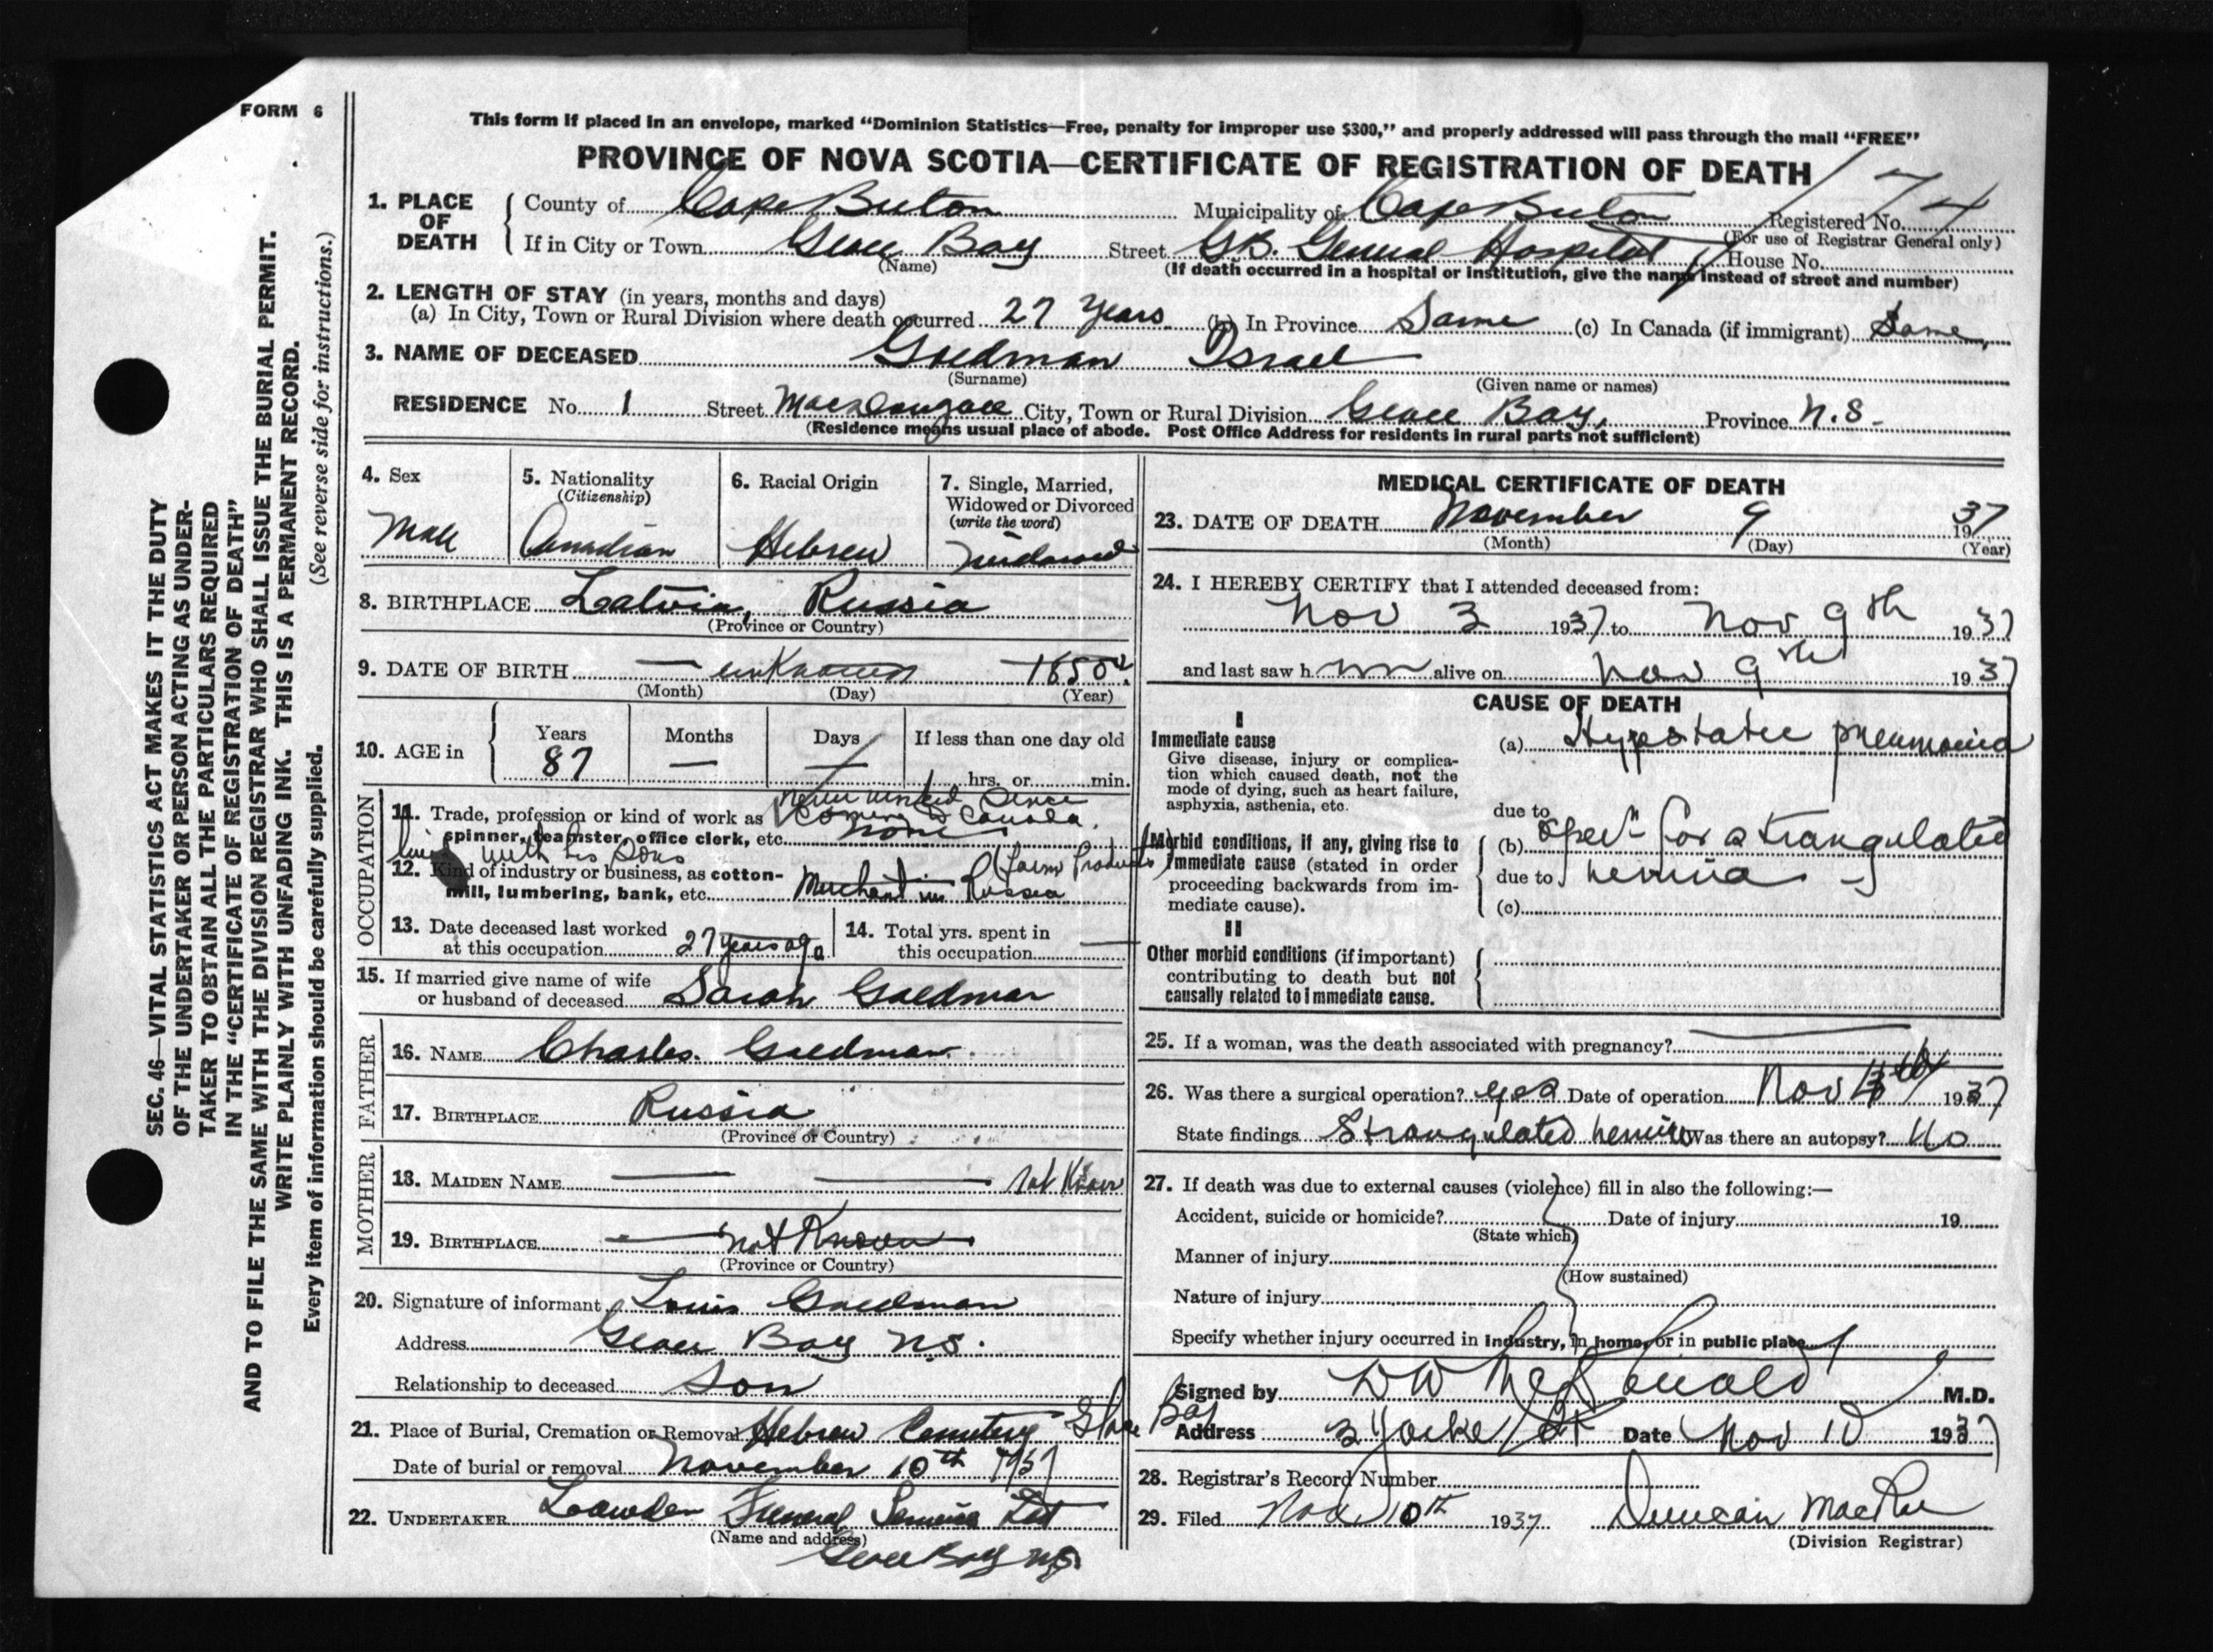 FORM 6
This form if placed in an envelope, marked "Dominion Statistics—Free, penalty for improper use $300," and properly addressed will pass through the mail "FREE"
PROVINCE OF NOVA SCOTIA—CERTIFICATE OF REGISTRATION OF DEATH
174
1. PLACE OF DEATH
County of Cape Breton Municipality of Cape Breton Registered No.
(For use of Registrar General only)
If in City or Town Glace Bay Street G.B. General Hospital House No.
(Name) (If death occurred in a hospital or institution, give the name instead of street and number)
2. LENGTH OF STAY (in years, months and days)
(a) In City, Town or Rural Division where death occurred 27 years (b) In Province Same (c) In Canada (if immigrant) Same
3. NAME OF DECEASED Goldman Israel
(Surname) (Given name or names)
RESIDENCE No. 1 Street MacDougall City, Town or Rural Division Glace Bay, Province N.S.
(Residence means usual place of abode. Post Office Address for residents in rural parts not sufficient)
4. Sex
Male
5. Nationality
(Citizenship)
Canadian
6. Racial Origin
Hebrew
7. Single, Married,
Widowed or Divorced
(write the word)
Widowed
8. BIRTHPLACE Latvia, Russia
(Province or Country)
9. DATE OF BIRTH — unknown 1850
(Month) (Day) (Year)
10. AGE in
Years Months Days If less than one day old
87 — — hrs. or min.
OCCUPATION
never worked since
coming to Canada.
11. Trade, profession or kind of work as
spinner, teamster, office clerk, etc. none
with his sons
12. Kind of industry or business, as cotton-
mill, lumbering, bank, etc. Merchant in Russia (Farm Products)
13. Date deceased last worked
at this occupation 27 years ago
14. Total yrs. spent in
this occupation —
15. If married give name of wife
or husband of deceased Sarah Goldman
FATHER
16. NAME Charles Goldman
17. BIRTHPLACE Russia
(Province or Country)
MOTHER
18. MAIDEN NAME — — not Known
19. BIRTHPLACE — not Known
(Province or Country)
20. Signature of informant Louis Goldman
Address Glace Bay N.S.
Relationship to deceased Son
21. Place of Burial, Cremation or Removal Hebrew Cemetery Glace Bay
Date of burial or removal November 10th 1937
22. UNDERTAKER Lowden Funeral Service Ltd
(Name and address)
Glace Bay N.S.
MEDICAL CERTIFICATE OF DEATH
23. DATE OF DEATH November 9 1937
(Month) (Day) (Year)
24. I HEREBY CERTIFY that I attended deceased from:
Nov 3 1937 to Nov 9th 1937
and last saw h im alive on Nov 9th 1937
CAUSE OF DEATH
I
Immediate cause
Give disease, injury or complica-
tion which caused death, not the
mode of dying, such as heart failure,
asphyxia, asthenia, etc.
(a) Hypostatic pneumonia
due to
Morbid conditions, if any, giving rise to
immediate cause (stated in order
proceeding backwards from im-
mediate cause).
(b) Opern for strangulated
due to hernia
(c)
II
Other morbid conditions (if important)
contributing to death but not
causally related to immediate cause.
25. If a woman, was the death associated with pregnancy? —
26. Was there a surgical operation? yes Date of operation Nov 1937
State findings Strangulated hernia Was there an autopsy? No
27. If death was due to external causes (violence) fill in also the following:—
Accident, suicide or homicide? Date of injury 19
(State which)
Manner of injury
(How sustained)
Nature of injury
Specify whether injury occurred in industry, in home, or in public place
Signed by D W McDonald M.D.
Address 3 Yorke St Date Nov 10 1937
28. Registrar's Record Number
29. Filed Nov 10th 1937 Duncan MacRae
(Division Registrar)
SEC. 46—VITAL STATISTICS ACT MAKES IT THE DUTY
OF THE UNDERTAKER OR PERSON ACTING AS UNDER-
TAKER TO OBTAIN ALL THE PARTICULARS REQUIRED
IN THE "CERTIFICATE OF REGISTRATION OF DEATH"
AND TO FILE THE SAME WITH THE DIVISION REGISTRAR WHO SHALL ISSUE THE BURIAL PERMIT.
WRITE PLAINLY WITH UNFADING INK. THIS IS A PERMANENT RECORD.
Every item of information should be carefully supplied. (See reverse side for instructions.)